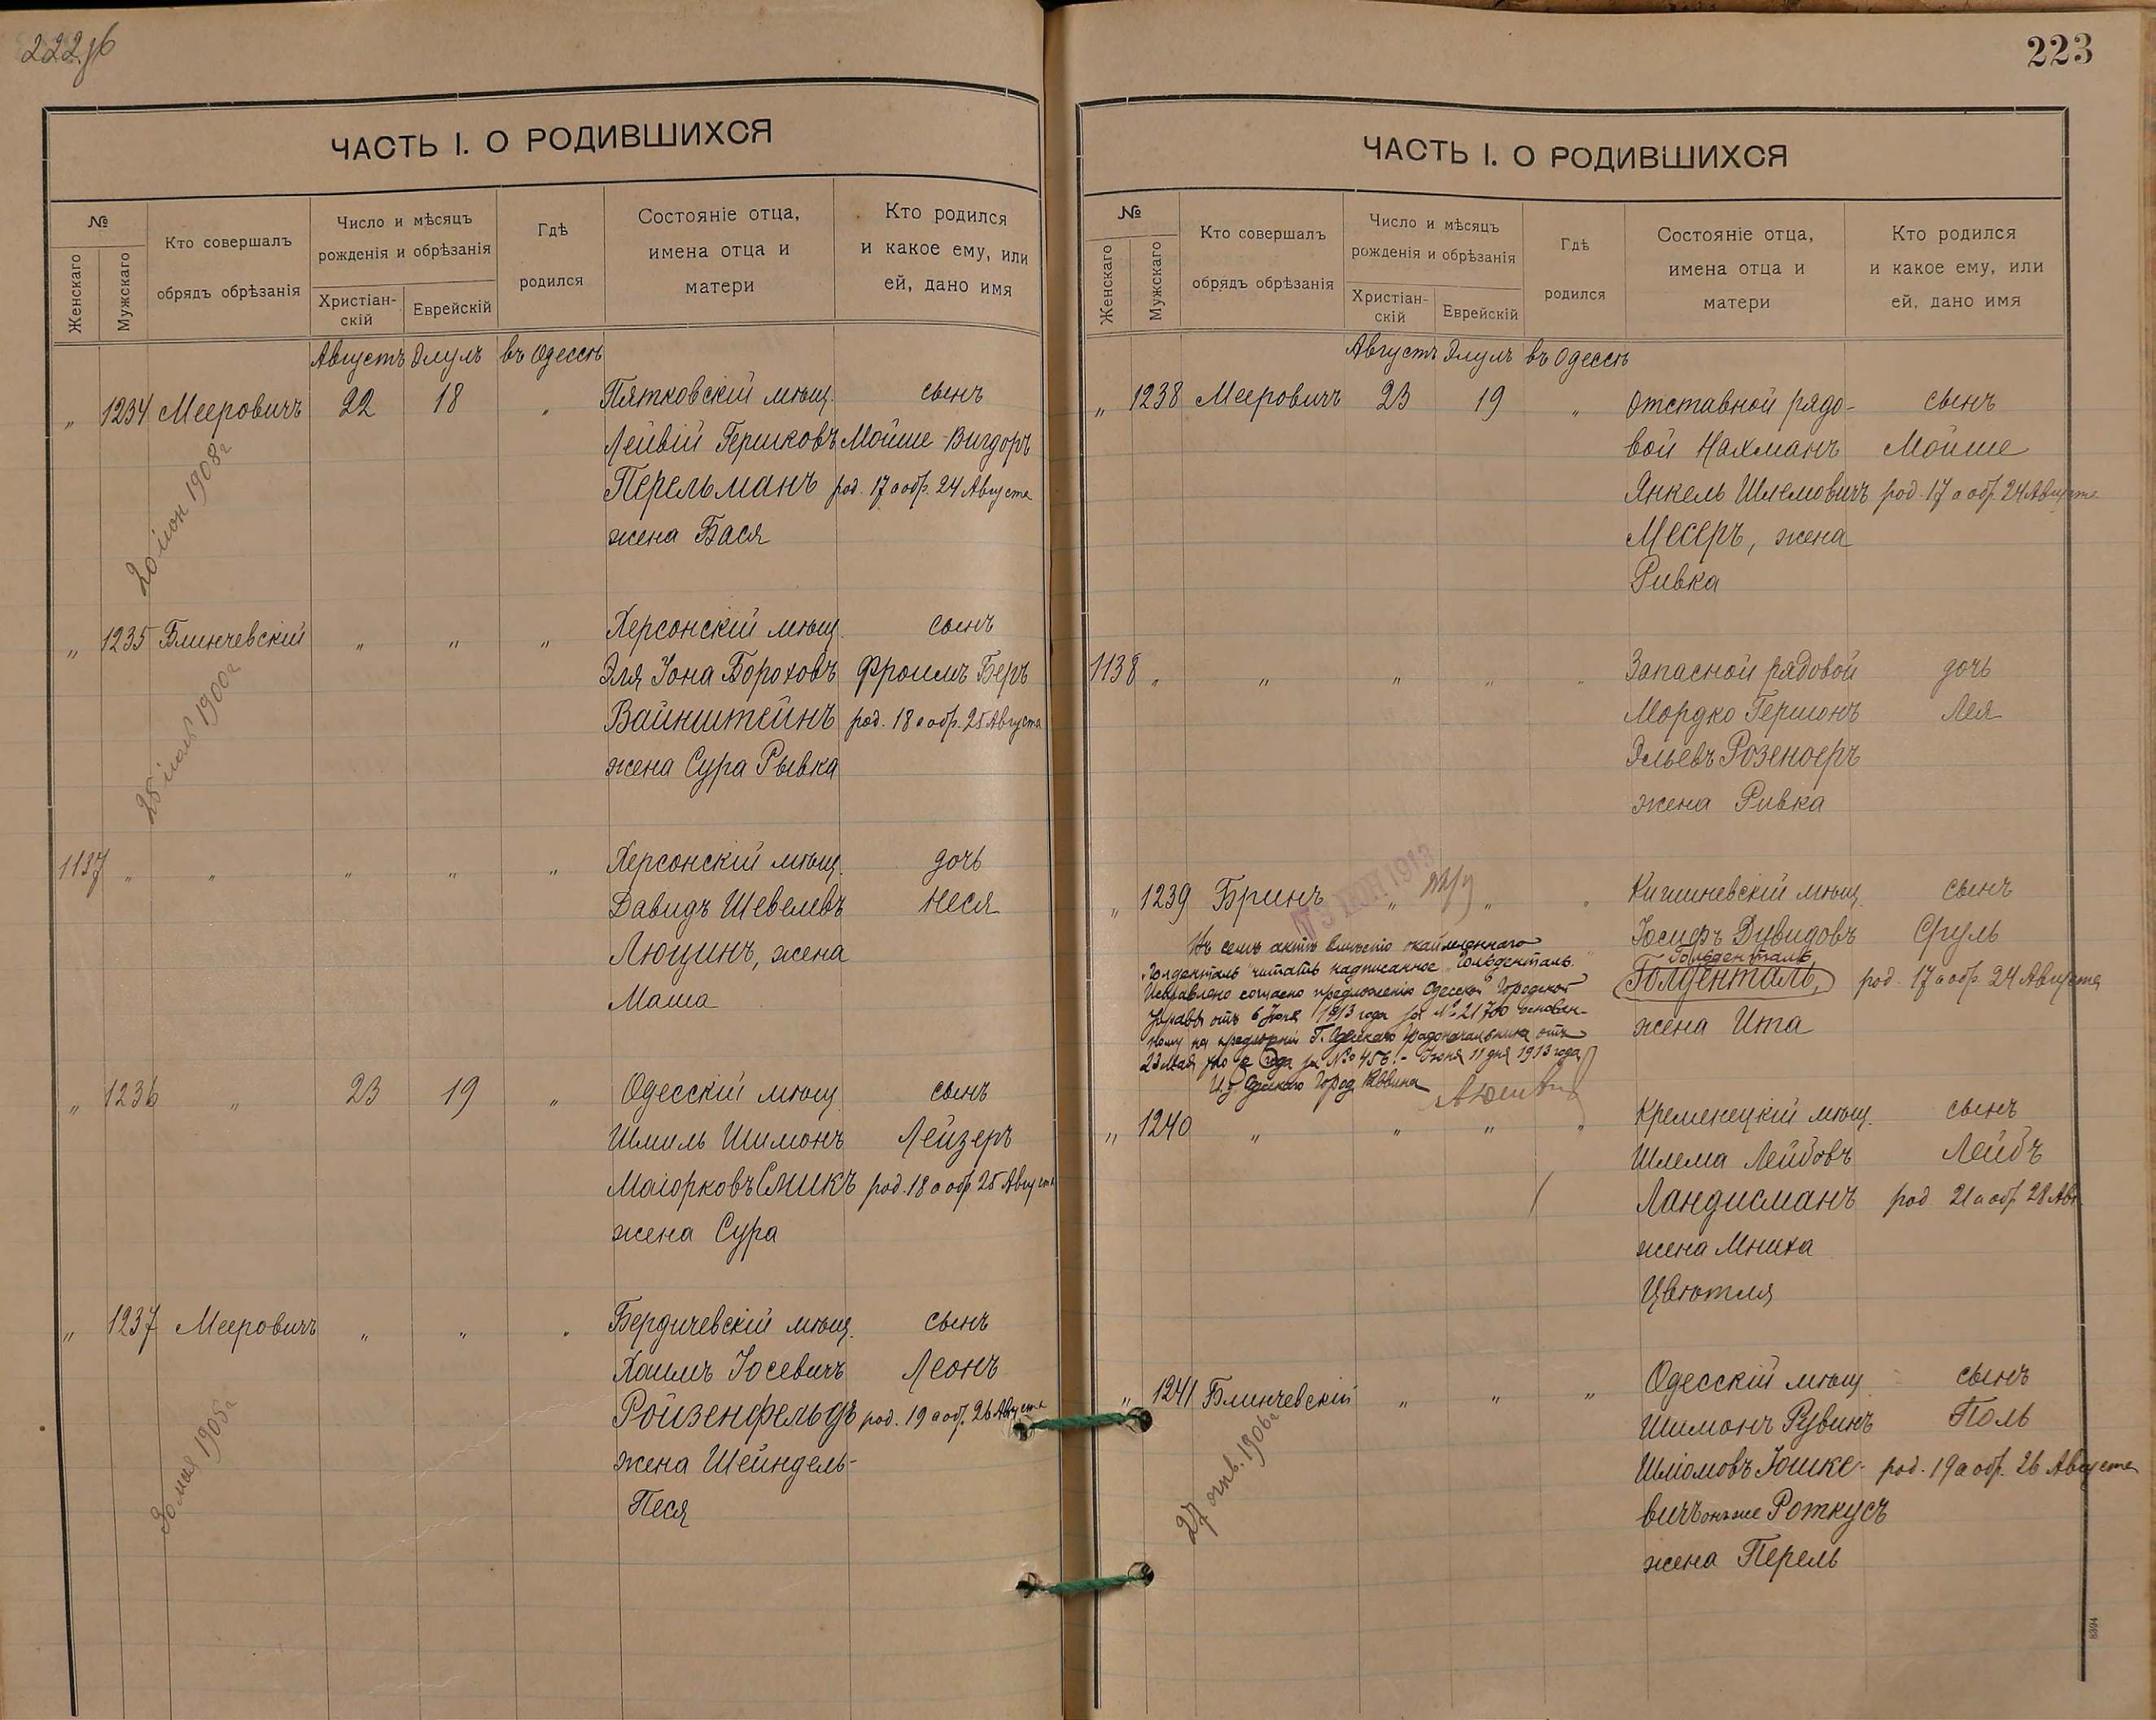 222об
ЧАСТЬ I. О РОДИВШИХСЯ
№
Женскаго
Мужскаго
Кто совершалъ
обрядъ обрѣзанія
Число и мѣсяцъ
рожденія и обрѣзанія
Христіан-
скій
Еврейскій
Гдѣ
родился
Состояніе отца,
имена отца и
матери
Кто родился
и какое ему, или
ей, дано имя
Августъ Элулъ въ Одессѣ
„ 1234 Мееровичъ 22 18 „ Пятковскій мѣщ. сынъ
Лейвій Гершковъ Мойше-Вигдоръ
Перельманъ род. 17 а обр. 24 Августа
жена Бася
20 іюн 1908 г
„ 1235 Блинчевскій „ „ „ Херсонскій мѣщ. сынъ
Эля Іона Бороховъ Фроимъ Беръ
Вайнштейнъ род. 18 а обр. 25 Августа
жена Сура Рывка
25 1900 г
1137 „ „ „ „ „ Херсонскій мѣщ. дочь
Давидъ Шевелевъ Неся
Люцинъ, жена
Маша
„ 1236 „ 23 19 „ Одесскій мѣщ. сынъ
Шмиль Шимонъ Лейзеръ
Маіорковъ Смикъ род. 18 а обр. 25 Августа
жена Сура
„ 1237 Мееровичъ „ „ „ Бердичевскій мѣщ. сынъ
Хаимъ Іосевичъ Леонъ
Ройзенфельдъ род. 19 а обр. 26 Августа
жена Шейндель-
Песя
30 мая 1905 г
223
ЧАСТЬ I. О РОДИВШИХСЯ
№
Женскаго
Мужскаго
Кто совершалъ
обрядъ обрѣзанія
Число и мѣсяцъ
рожденія и обрѣзанія
Христіан-
скій
Еврейскій
Гдѣ
родился
Состояніе отца,
имена отца и
матери
Кто родился
и какое ему, или
ей, дано имя
Августъ Элулъ въ Одессѣ
„ 1238 Мееровичъ 23 19 „ Отставной рядо- сынъ
вой Нахманъ Мойше
Янкель Шлемовичъ род. 17 а обр. 24 Августа
Месеръ, жена
Ривка
1138 „ „ „ „ „ Запасной рядовой дочь
Мордко Гершонъ Лея
Эльевъ Розеноеръ
жена Ривка
ИЮН 1913
„ 1239 Бринъ „ „ „ Кишиневскій мѣщ. сынъ
Іосифъ Дувидовъ Сруль
Гольденталь
Голденталь, род. 17 а обр. 24 Августа
жена Ита
Въ семъ актѣ вмѣсто окаймленнаго
„Голденталь" читать надписанное „Гольденталь."
Исправлено согласно предложенію Одесской Городской
Управы отъ 6 Іюня 1913 года за № 21700 основан-
ному на предложеніи Г. Одесскаго Градоначальника отъ
23 Мая года за № 456. – Іюня 11 дня 1913 года
И. д. Одесскаго Город. Раввина
„ 1240 „ „ „ „ Кременецкій мѣщ. сынъ
Шлема Лейбовъ Лейбъ
Ландисманъ род. 21 а обр. 28 Авг.
жена Мниха
Цвютля
„ 1241 Блинчевскій „ „ „ Одесскій мѣщ. сынъ
Шимонъ Рувинъ Поль
Шліомовъ Юшке- род. 19 а обр. 26 Августа
вичъ онъ же Роткусъ
жена Перель
27 окт. 1906 г
8394